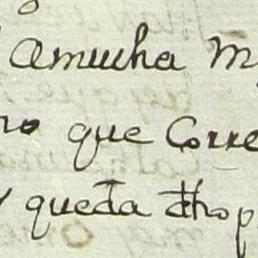 amucha M
no que Corre
y queda dho p